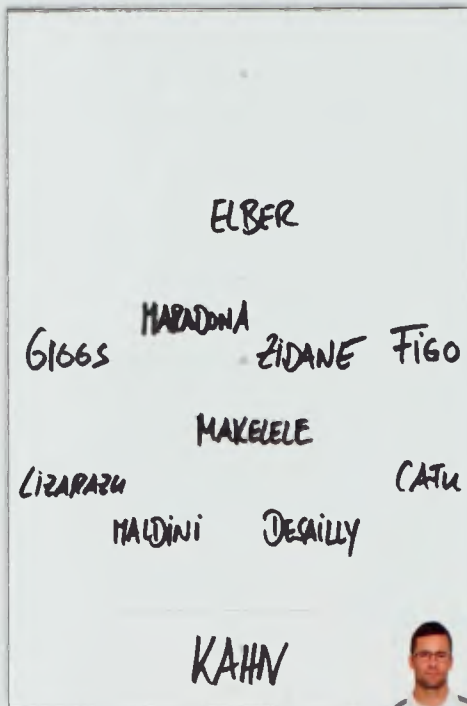 ELBER
MARADONA
GIGGS ZIDANE FIGO
MAKELELE
LIZARAZU CAFU
MALDINI DESAILLY
KAHN